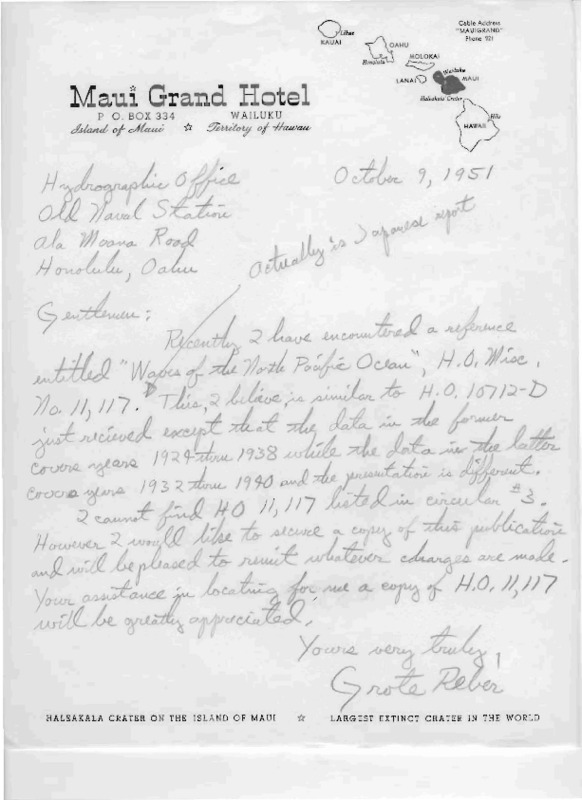 Cable Address
"MAUIGRAND"
Phone 921
Lihue
KAUAI
OAHU
Honolulu
MOLOKAI
LANAI
Wailuku
MAUI
Haleakala Crater
Hilo
HAWAII
Maui Grand Hotel
P. O. BOX 334 WAILUKU
Island of Maui ☆ Territory of Hawaii
October 9, 1951
Hydrographic Office
Old Naval Station
Ala Moana Road
Honolulu, Oahu
Actually is Japanese report
Gentlemen:
Recently I have encountered a reference
entitled "Waves of the North Pacific Ocean", H.O. Misc.
No. 11,117. This, I believe, is similar to H.O. 10712-D
just recieved except that the data in the former
covers years 1924 thru 1938 while the data in the latter
covers years 1932 thru 1940 and the presentation is different.
I cannot find HO 11,117 listed in circular #3.
However I would like to secure a copy of this publication
and will be pleased to remit whatever charges are made.
Your assistance in locating for me a copy of H.O. 11,117
will be greatly appreciated.
Yours very truly,
Grote Reber
HALEAKALA CRATER ON THE ISLAND OF MAUI ☆ LARGEST EXTINCT CRATER IN THE WORLD